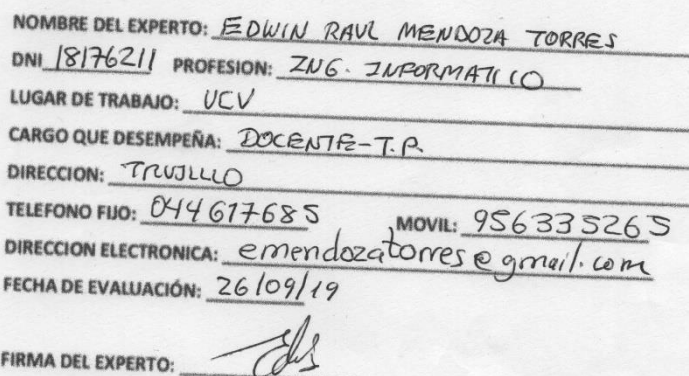 NOMBRE DEL EXPERTO: EDWIN RAUL MENDOZA TORRES
DNI 18176211 PROFESION: ING. INFORMATICO
LUGAR DE TRABAJO: UCV
CARGO QUE DESEMPEÑA: DOCENTE-T.P.
DIRECCION: TRUJILLO
TELEFONO FIJO: 044617685 MOVIL: 956335265
DIRECCION ELECTRONICA: emendozatorres@gmail.com
FECHA DE EVALUACIÓN: 26/09/19
FIRMA DEL EXPERTO: